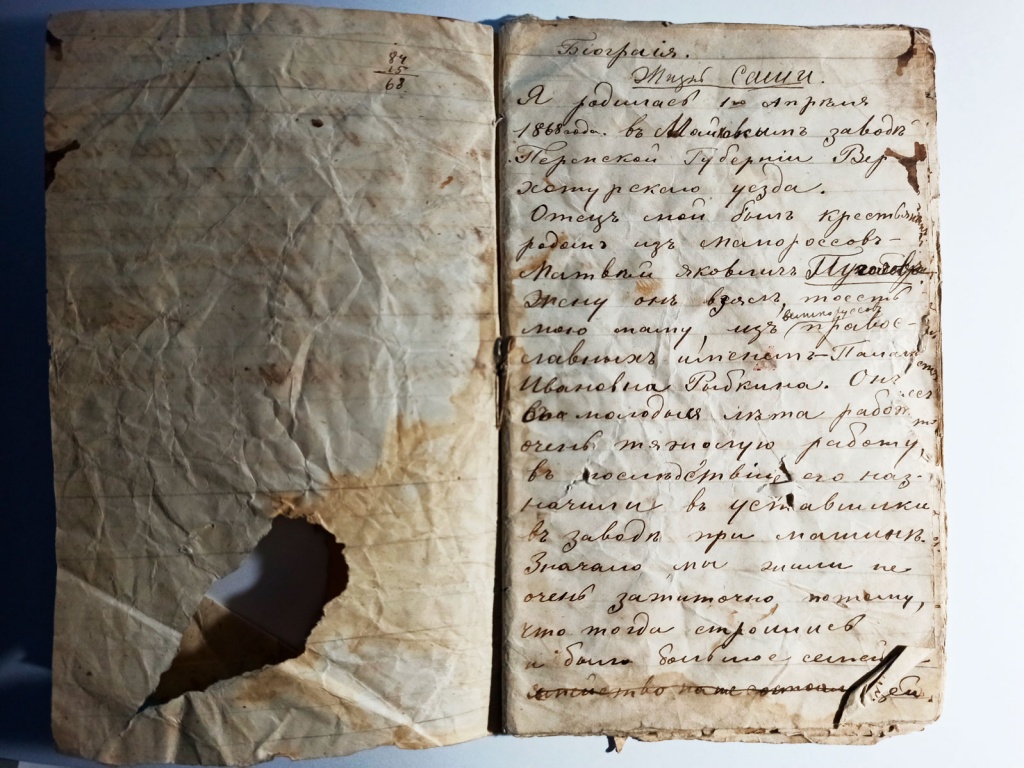 84
15
68
Біографія.
Жизнь Саши.
Я родилась 1го Апрѣля
1868 года. въ Майковкымъ заводѣ
Пермской Губерніи Вер
хотурскаго уезда.
Отецъ мой былъ крестьян
родомъ изъ малороссовъ-
Матвѣй Яковличъ
Жену онъ взялъ, тоесть
великоруссов
мою маму изъ правос-
славныхъ именемъ-
Ивановна Рыбкина. Онъ
молодыя лѣта работ
очень тяжолую работу
въ послѣдствіи его наз-
начили въ уставшики
въ заводѣ при машинѣ.
Значало мы жили не
очень зажиточно потому,
что тогда строились
и было большое семей